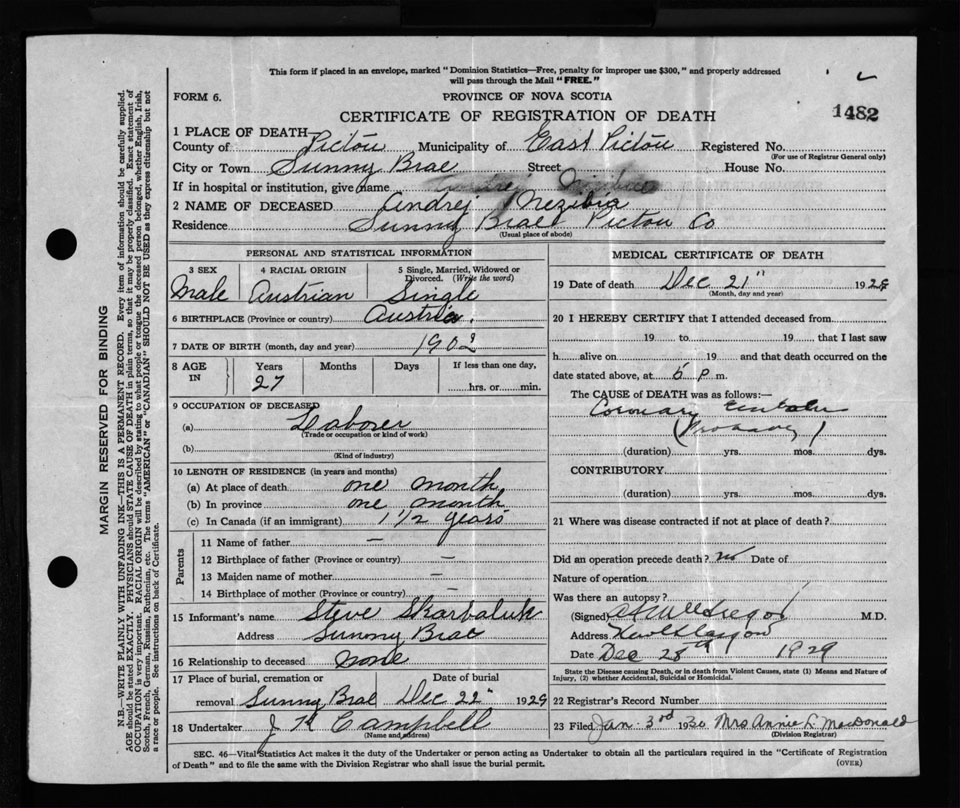 This form if placed in an envelope, marked "Dominion Statistics—Free, penalty for improper use $300," and properly addressed
will pass through the Mail "FREE."
FORM 6.
PROVINCE OF NOVA SCOTIA
CERTIFICATE OF REGISTRATION OF DEATH
1482
1 PLACE OF DEATH
County of Pictou Municipality of East Pictou Registered No.
(For use of Registrar General only)
City or Town Sunny Brae Street House No.
If in hospital or institution, give name
2 NAME OF DECEASED Andrej
Residence Sunny Brae Pictou Co
(Usual place of abode)
PERSONAL AND STATISTICAL INFORMATION
3 SEX 4 RACIAL ORIGIN 5 Single, Married, Widowed or
Divorced. (Write the word)
Male Austrian Single
6 BIRTHPLACE (Province or country) Austria.
7 DATE OF BIRTH (month, day and year) 1902
8 AGE IN Years Months Days If less than one day,
27 hrs. or min.
9 OCCUPATION OF DECEASED
(a) Laborer
(Trade or occupation or kind of work)
(b)
(Kind of industry)
10 LENGTH OF RESIDENCE (in years and months)
(a) At place of death one month
(b) In province one month
(c) In Canada (if an immigrant) 1 1/2 years
Parents
11 Name of father —
12 Birthplace of father (Province or country) —
13 Maiden name of mother —
14 Birthplace of mother (Province or Country) —
15 Informant's name Steve Skarbaluk
Address Sunny Brae
16 Relationship to deceased none
17 Place of burial, cremation or Date of burial
removal Sunny Brae Dec 22" 1929
18 Undertaker J H Campbell
(Name and address)
MEDICAL CERTIFICATE OF DEATH
19 Date of death Dec 21" 1929
(Month, day and year)
20 I HEREBY CERTIFY that I attended deceased from
19 to 19, that I last saw
h alive on 19 and that death occurred on the
date stated above, at 5 P m.
The CAUSE of DEATH was as follows:—
Coronary
(duration) yrs. mos. dys.
CONTRIBUTORY
(duration) yrs. mos. dys.
21 Where was disease contracted if not at place of death?
Did an operation precede death? no Date of
Nature of operation
Was there an autopsy?
(Signed) M.D.
Address New Glasgow
Date Dec 28th 1929
State the Disease causing Death, or in death from Violent Causes, state (1) Means and Nature of
Injury, (2) whether Accidental, Suicidal or Homicidal.
22 Registrar's Record Number
23 Filed Jan. 3rd 1930 Mrs Annie L. MacDonald
(Division Registrar)
SEC. 46—Vital Statistics Act makes it the duty of the Undertaker or person acting as Undertaker to obtain all the particulars required in the "Certificate of Registration
of Death" and to file the same with the Division Registrar who shall issue the burial permit.
(OVER)
MARGIN RESERVED FOR BINDING
N.B.—WRITE PLAINLY WITH UNFADING INK—THIS IS A PERMANENT RECORD. Every item of information should be carefully supplied.
AGE should be stated EXACTLY. PHYSICIANS should STATE CAUSE OF DEATH in plain terms, so that it may be properly classified. Exact statement of
OCCUPATION is very important. RACIAL ORIGIN will be described by stating to what people or tongue the deceased person belonged, whether English, Irish,
Scotch, French, German, Russian, Ruthenian, etc. The terms "AMERICAN" or "CANADIAN" SHOULD NOT BE USED as they express citizenship but not
a race or people. See instructions on back of Certificate.